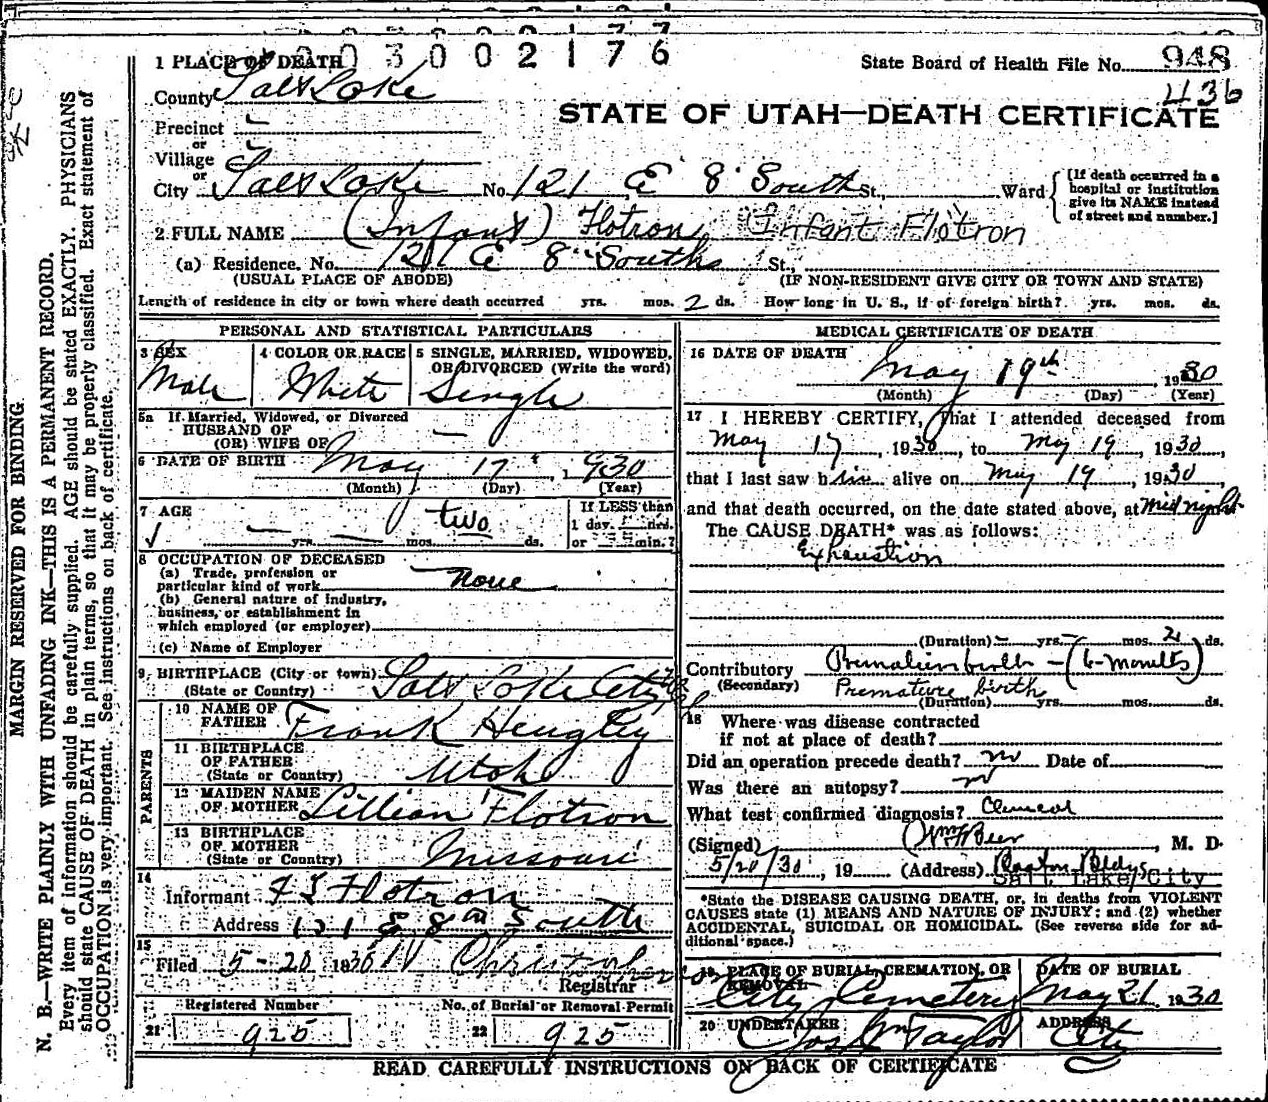 003002176
1 PLACE OF DEATH
State Board of Health File No. 948
436
County Salt Lake
STATE OF UTAH—DEATH CERTIFICATE
Precinct —
or
Village —
or
City Salt Lake No. 121 E 8 South St., Ward
[If death occurred in a hospital or institution give its NAME instead of street and number.]
2 FULL NAME (Infant) Flotron Infant Flotron
(a) Residence. No. 121 E 8 South St.,
(USUAL PLACE OF ABODE) (IF NON-RESIDENT GIVE CITY OR TOWN AND STATE)
Length of residence in city or town where death occurred yrs. mos. 2 ds. How long in U. S., if of foreign birth? yrs. mos. ds.
PERSONAL AND STATISTICAL PARTICULARS
3 SEX
Male
4 COLOR OR RACE
White
5 SINGLE, MARRIED, WIDOWED, OR DIVORCED (Write the word)
Single
5a If Married, Widowed, or Divorced
HUSBAND OF
(OR) WIFE OF —
6 DATE OF BIRTH May 17, 1930
(Month) (Day) (Year)
7 AGE
— yrs. — mos. two ds.
If LESS than
1 day, hrs.
or min.?
8 OCCUPATION OF DECEASED
(a) Trade, profession or
particular kind of work None
(b) General nature of industry,
business, or establishment in
which employed (or employer)
(c) Name of Employer
9 BIRTHPLACE (City or town) Salt Lake City
(State or Country)
PARENTS
10 NAME OF
FATHER Frank Heugley
11 BIRTHPLACE
OF FATHER
(State or Country) Utah
12 MAIDEN NAME
OF MOTHER Lillian Flotron
13 BIRTHPLACE
OF MOTHER
(State or Country) Missouri
14
Informant Flotron
Address 121 E 8th South
15
Filed 5-20 1930
Registrar
Registered Number
21 925
No. of Burial or Removal Permit
22 925
MEDICAL CERTIFICATE OF DEATH
16 DATE OF DEATH
May 19th, 1930
(Month) (Day) (Year)
17 I HEREBY CERTIFY, That I attended deceased from
May 17, 1930, to May 19, 1930,
that I last saw him alive on May 19, 1930,
and that death occurred, on the date stated above, at midnight
The CAUSE DEATH* was as follows:
Exhaustion
(Duration) — yrs. — mos. 2 ds.
Contributory Premature birth – (6-months)
(Secondary) Premature birth
(Duration) yrs. mos. ds.
18 Where was disease contracted
if not at place of death?
Did an operation precede death? no Date of
Was there an autopsy? no
What test confirmed diagnosis? Clinical
(Signed) Wm F Beer, M. D.
5/20/30, 19 (Address) Boston Bldg
Salt Lake City
*State the DISEASE CAUSING DEATH, or, in deaths from VIOLENT
CAUSES state (1) MEANS AND NATURE OF INJURY; and (2) whether
ACCIDENTAL, SUICIDAL OR HOMICIDAL. (See reverse side for ad-
ditional space.)
19 PLACE OF BURIAL, CREMATION, OR
REMOVAL
City Cemetery
DATE OF BURIAL
May 21 1930
20 UNDERTAKER
Jos Wm Taylor
ADDRESS
City
READ CAREFULLY INSTRUCTIONS ON BACK OF CERTIFICATE
MARGIN RESERVED FOR BINDING
N. B.—WRITE PLAINLY WITH UNFADING INK—THIS IS A PERMANENT RECORD.
Every item of information should be carefully supplied. AGE should be stated EXACTLY. PHYSICIANS
should state CAUSE OF DEATH in plain terms, so that it may be properly classified. Exact statement of
OCCUPATION is very important. See instructions on back of certificate.